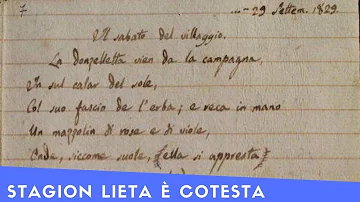 7
... - 29 Settem. 1829.
Il sabato del villaggio.
La donzelletta vien da la campagna,
In sul calar del sole,
Col suo fascio de l'erba; e reca in mano
Un mazzolin di rose e di viole,
Onde, siccome suole, (ella si appresta)
STAGION LIETA È COTESTA